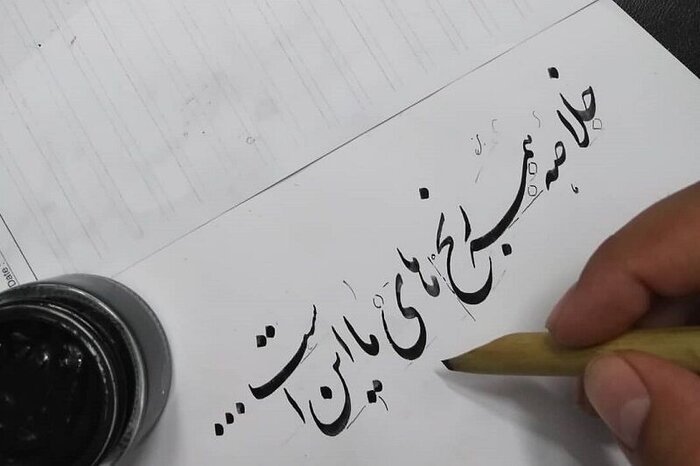 خلاصه همه رنج های ما این است...
Date: